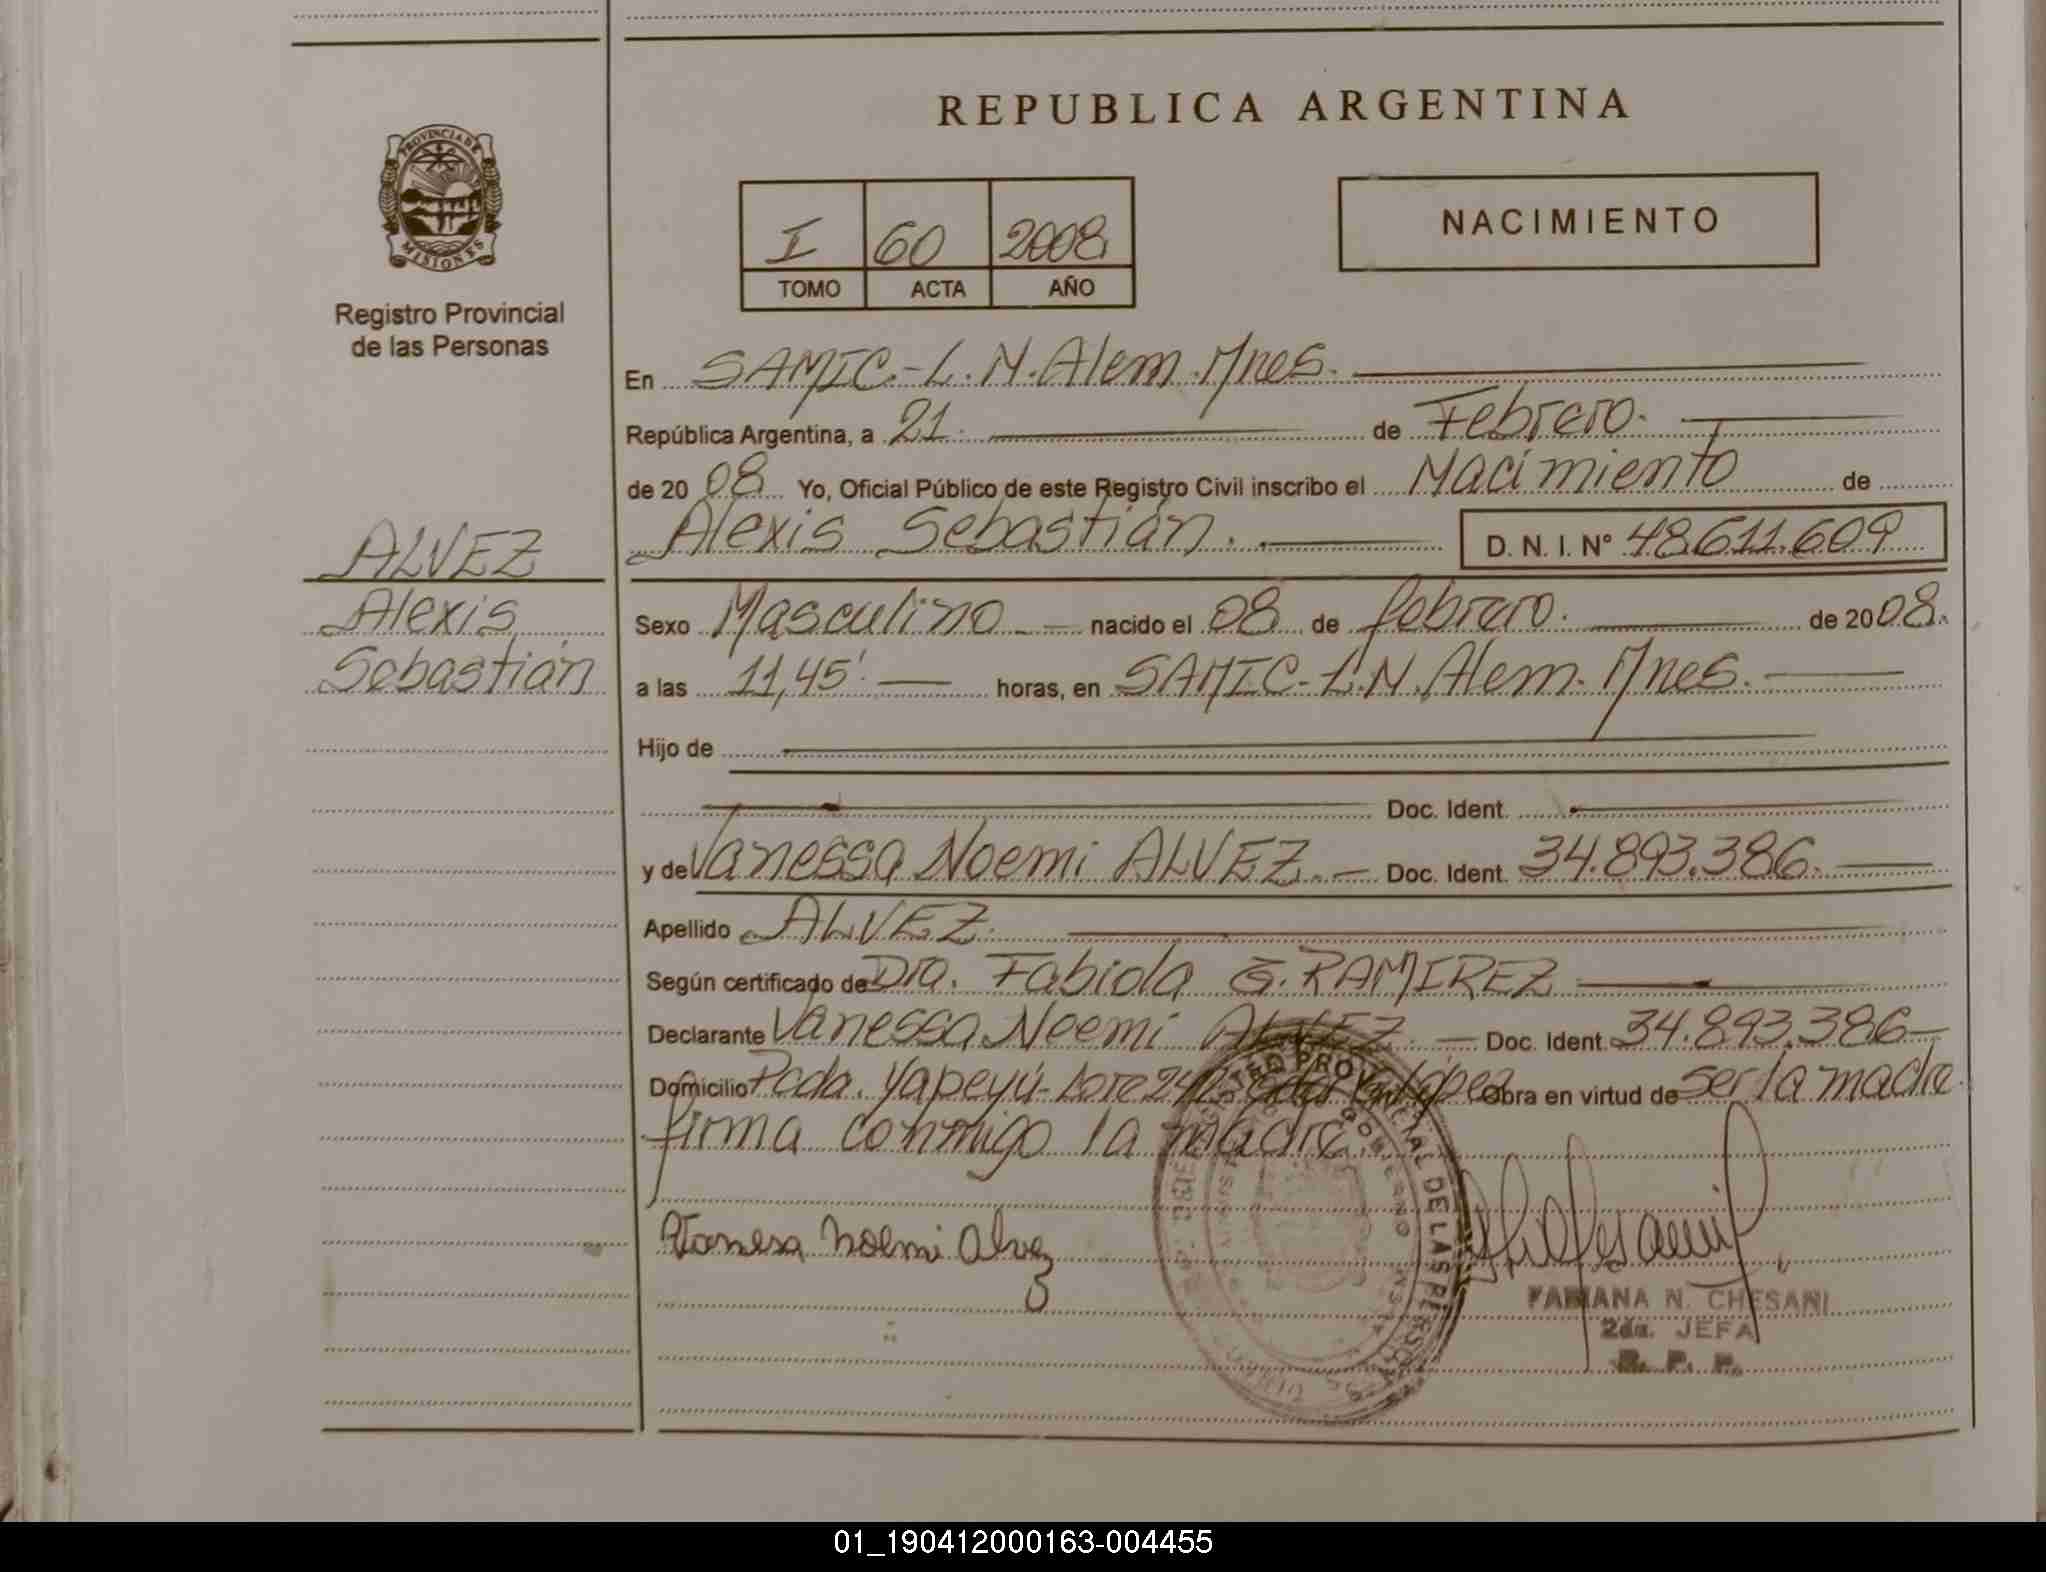 REPUBLICA ARGENTINA
PROVINCIA DE
MISIONES
Registro Provincial
de las Personas
I 60 2008
TOMO ACTA AÑO
NACIMIENTO
En SAMIC.-L.N.Alem.Mnes.
República Argentina, a 21. de Febrero.
de 20 08 Yo, Oficial Público de este Registro Civil inscribo el Nacimiento de
Alexis Sebastián. D. N. I. Nº 48.611.609
ALVEZ
Alexis
Sebastián
Sexo Masculino nacido el 08 de febrero. de 2008.
a las 11,45'. horas, en SAMIC-L.N.Alem.Mnes.
Hijo de
Doc. Ident.
y de Vanessa Noemi ALVEZ.- Doc. Ident. 34.893.386.
Apellido ALVEZ.
Según certificado de Dra. Fabiola G. RAMIREZ
Declarante Vanessa Noemi ALVEZ. Doc. Ident. 34.893.386
Domicilio Pcda. Yapeyú-Lote López Obra en virtud de ser la madre.
firma conmigo la madre.
Vanesa Noemi Alvez
REGISTRO PROVINCIAL DE LAS PERSONAS
FABIANA N. CHESANI
2da. JEFA
R. P. P.
01_190412000163-004455